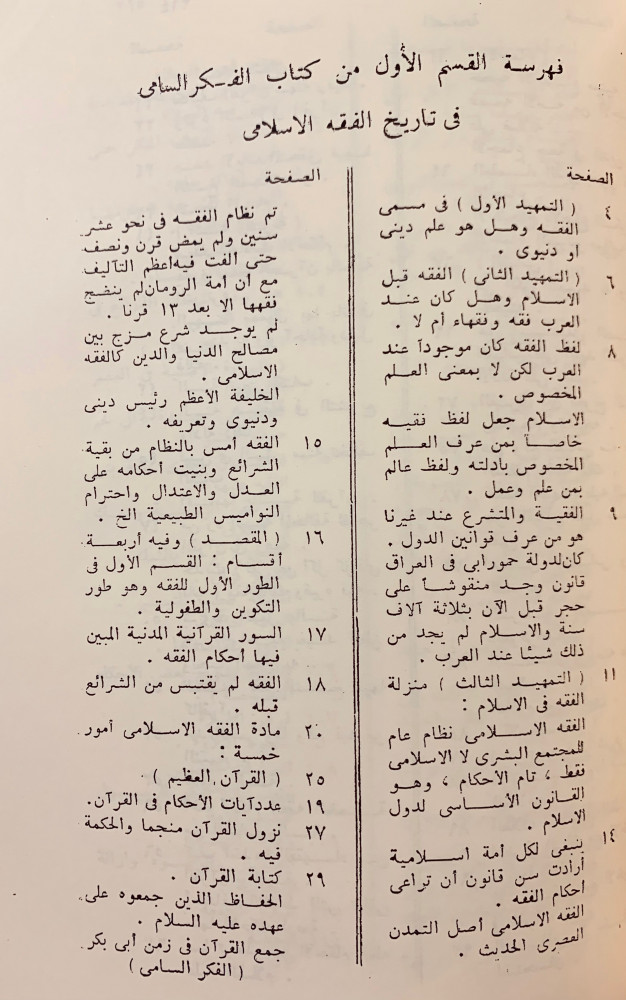 فهرسة القسم الأول من كتاب الفـكر السامى
فى تاريخ الفقه الاسلامى
الصفحة
٤ ( التمهيد الأول ) فى مسمى
الفقه وهل هو علم دينى
او دنيوى .
٦ ( التمهيد الثانى ) الفقه قبل
الاسلام وهل كان عند
العرب فقه ونقهاء أم لا .
٨ لفظ الفقه كان موجوداً عند
العرب لكن لا بمعنى العلم
المخصوص .
الاسلام جعل لفظ فقيه
خاصاً بمن عرف العلم
المخصوص بادلته ولفظ عالم
بمن علم وعمل .
٩ الفقية والمتشرع عند غيرنا
هو من عرف قوانين الدول .
كان لدولة حمورابى فى العراق
قانون وجد منقوشاً على
حجر قبل الآن بثلاثة آلاف
سنة والاسلام لم يجد من
ذلك شيئا عند العرب .
١١ ( التمهيد الثالث ) منزلة
الفقه فى الاسلام :
الفقه الاسلامى نظام عام
للمجتمع البشرى لا الاسلامى
فقط ، تام الأحكام ، وهو
القانون الأساسى لدول
الاسلام .
١٤ ينبغى لكل أمة اسلامية
أرادت سن قانون أن تراعى
أحكام الفقه .
الفقه الاسلامى أصل التمدن
العصرى الحديث .
الصفحة
تم نظام الفقه فى نحو عشر
سنين ولم يمض قرن ونصف
حتى الفت فيه أعظم التآليف
مع أن أمة الرومان لم ينضج
نقهها الا بعد ١٣ قرنا .
لم يوجد شرع مزج بين
مصالح الدنيا والدين كالفقه
الاسلامى .
الخليفة الأعظم رئيس دينى
ودنيوى وتعريفه .
١٥ الفقه أمس بالنظام من بقية
الشرائع وبنيت أحكامه على
العدل والاعتدال واحترام
النواميس الطبيعية الخ .
١٦ ( المقصد ) وفيه أربعة
أقسام : القسم الأول فى
الطور الأول للفقه وهو طور
التكوين والطفولية .
١٧ السور القرآنية المدنية المبين
فيها أحكام الفقه .
١٨ الفقه لم يقتبس من الشرائع
قبله .
٢٠ مادة الفقه الاسلامى أمور
خمسة :
٢٥ ( القرآن العظيم )
١٩ عدد آيات الأحكام فى القرآن .
٢٧ نزول القرآن منجما والحكمة
فيه .
٢٩ كتابة القرآن .
الحفاظ الذين جمعوه على
عهده عليه السلام .
جمع القرآن فى زمن أبى بكر
( الفكر السامى )